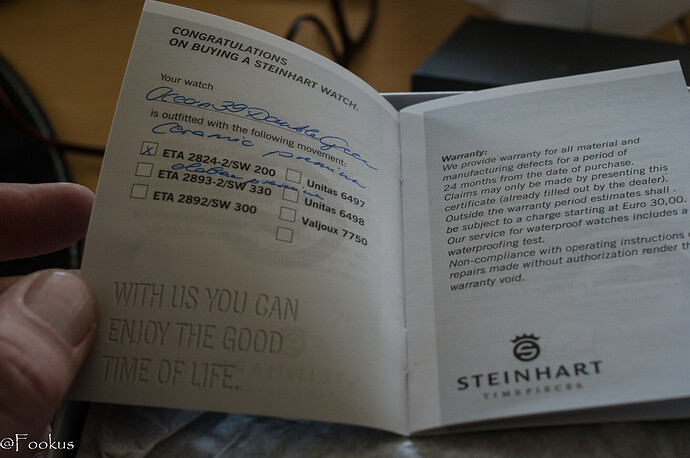 CONGRATULATIONS
ON BUYING A STEINHART WATCH.
Your watch
Ocean 39 Double Green
is outfitted with the following movement:
Ceramic premium
X ETA 2824-2/SW 200
Unitas 6497
ETA 2893-2/SW 330
Unitas 6498
ETA 2892/SW 300
Valjoux 7750
WITH US YOU CAN
ENJOY THE GOOD
TIME OF LIFE.
Warranty:
We provide warranty for all material and
manufacturing defects for a period of
24 months from the date of purchase.
Claims may only be made by presenting this
certificate (already filled out by the dealer).
Outside the warranty period estimates shall
be subject to a charge starting at Euro 30,00.
Our service for waterproof watches includes a
waterproofing test.
Non-compliance with operating instructions
repairs made without authorization render th
warranty void.
STEINHART
TIMEPIECES
@Fookus